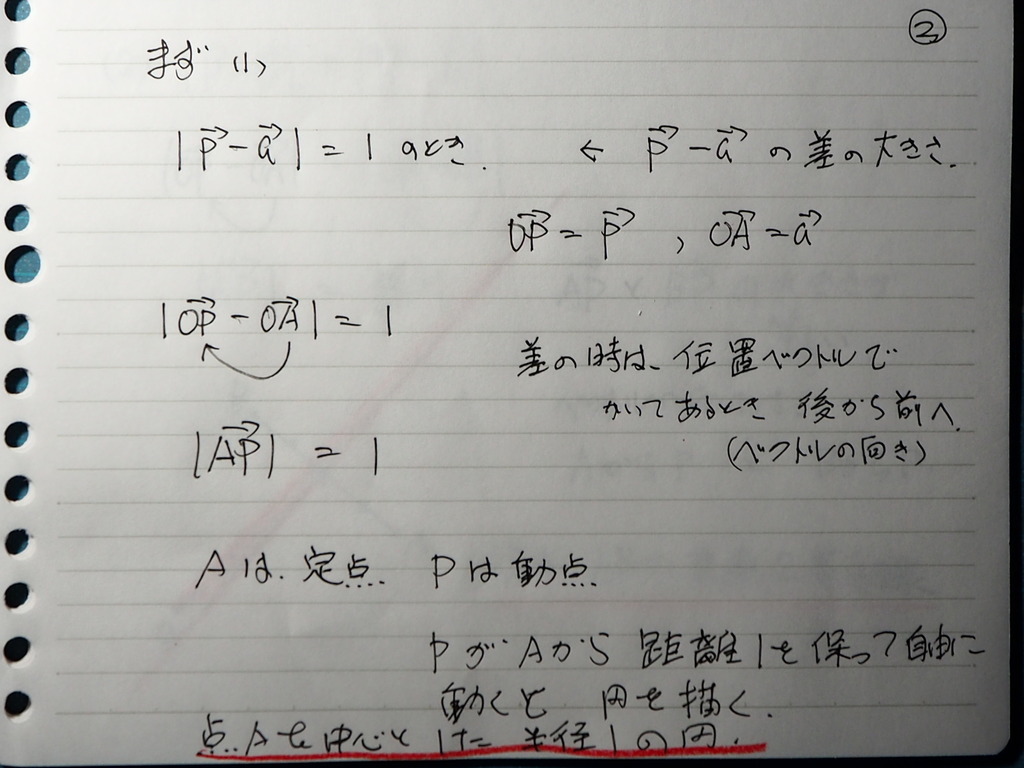 ②
まず (1)
|p→ - a→| = 1 のとき. ← p→ - a→ の差の大きさ.
OP→ = p→ , OA→ = a→
|OP→ - OA→| = 1
差の時は、位置ベクトルで
かいてあるとき 後から前へ.
|AP→| = 1
(ベクトルの向き)
Aは、定点. Pは動点.
PがAから距離1を保って自由に
動くと 円を描く.
点Aを中心とした 半径1の円.